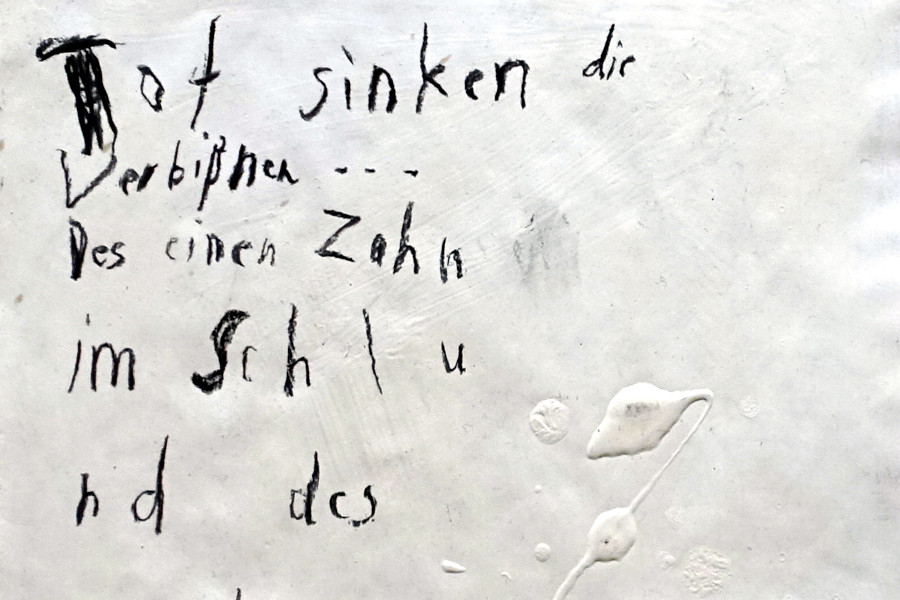 Tot sinken die
Verbißnen ---
Des einen Zahn
im Schlu
nd des